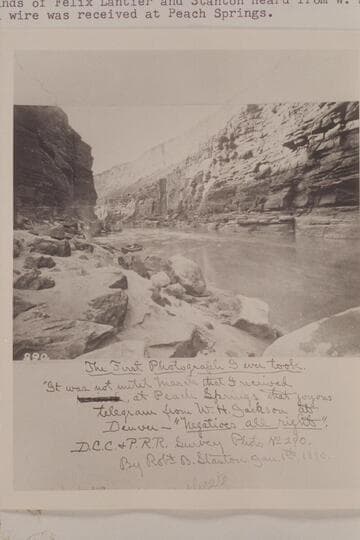 nds of Felix Lantier and Stanton heard from W.
wire was received at Peach Springs.
290
The First Photograph I ever took.
"It was not until March that I received
, at Peach Springs, that joyous
telegram from W. H. Jackson at
Denver — "Negatives all right".
D.C.C. & P.R.R. Survey Photo No 290.
By Robt B. Stanton Jan. 1890.